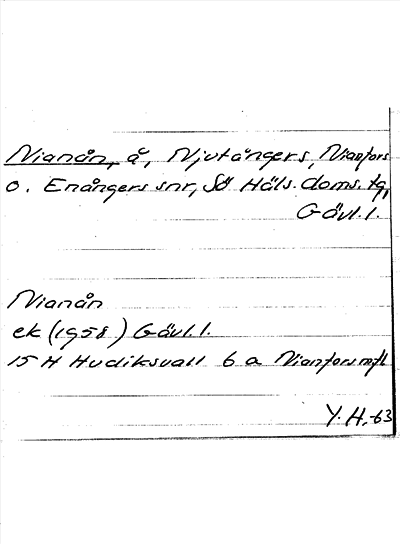 Nianån, å, Njutångers, Nianfors
o. Enångers snr, Sö Häls. doms. tg,
Gävl. l.
Nianån
ek (1958) Gävl. l.
15 H Hudiksvall 6 a Nianfors mfl
Y. H. -63